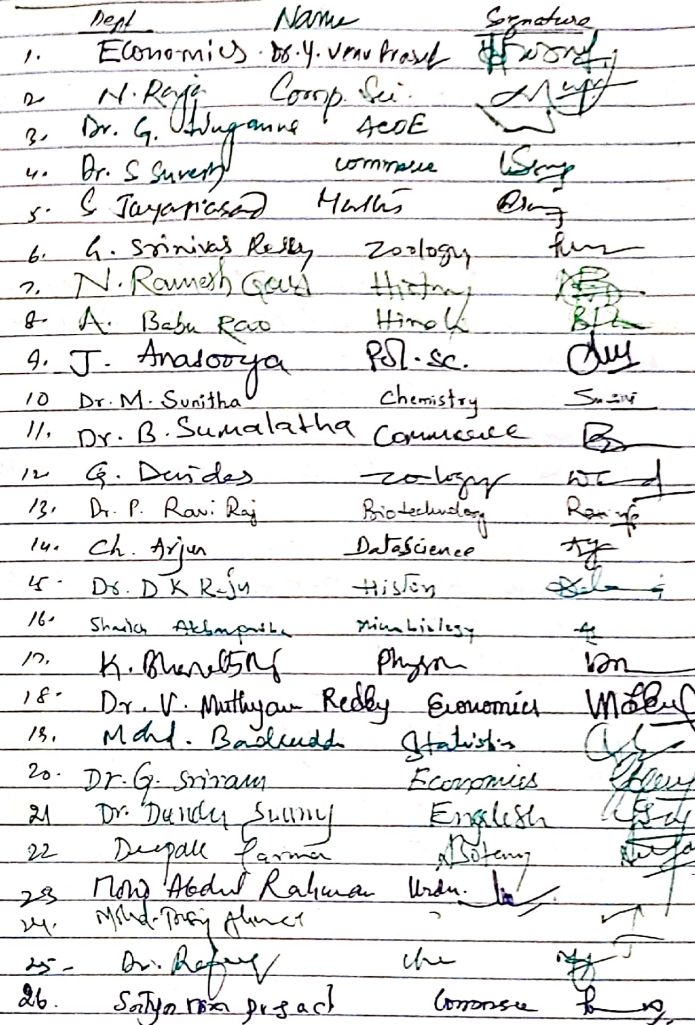 Dept Name Signature
1. Economics Dr. Y. Venu Prasad
2. N. Raja Comp. Sci.
3. Dr. G. ACOE
4. Dr. S Suresh commerce
5. S Jayaprasad Maths
6. G. Srinivas Reddy Zoology
7. N. Ramesh Goud History
8. A. Babu Rao Hindi
9. J. Anasooya Pol. sc.
10 Dr. M. Sunitha Chemistry
11. Dr. B. Sumalatha Commerce
12 G. Devidas zoology
13. Dr. P. Ravi Raj Biotechnology
14. Ch. Arjun DataScience
15. Dr. D K Raju History
16. Shaikh microbiology
17. K. Physics
18. Dr. V. Muthyam Reddy Economics
19. Mohd. Statistics
20. Dr. G. Sriram Economics
21 Dr. Dandu Sunny English
22 Deepak Parmar Botany
23 Mohd Abdul Rahman Urdu.
24. Mohd.
25 - Dr. che
26. commerce